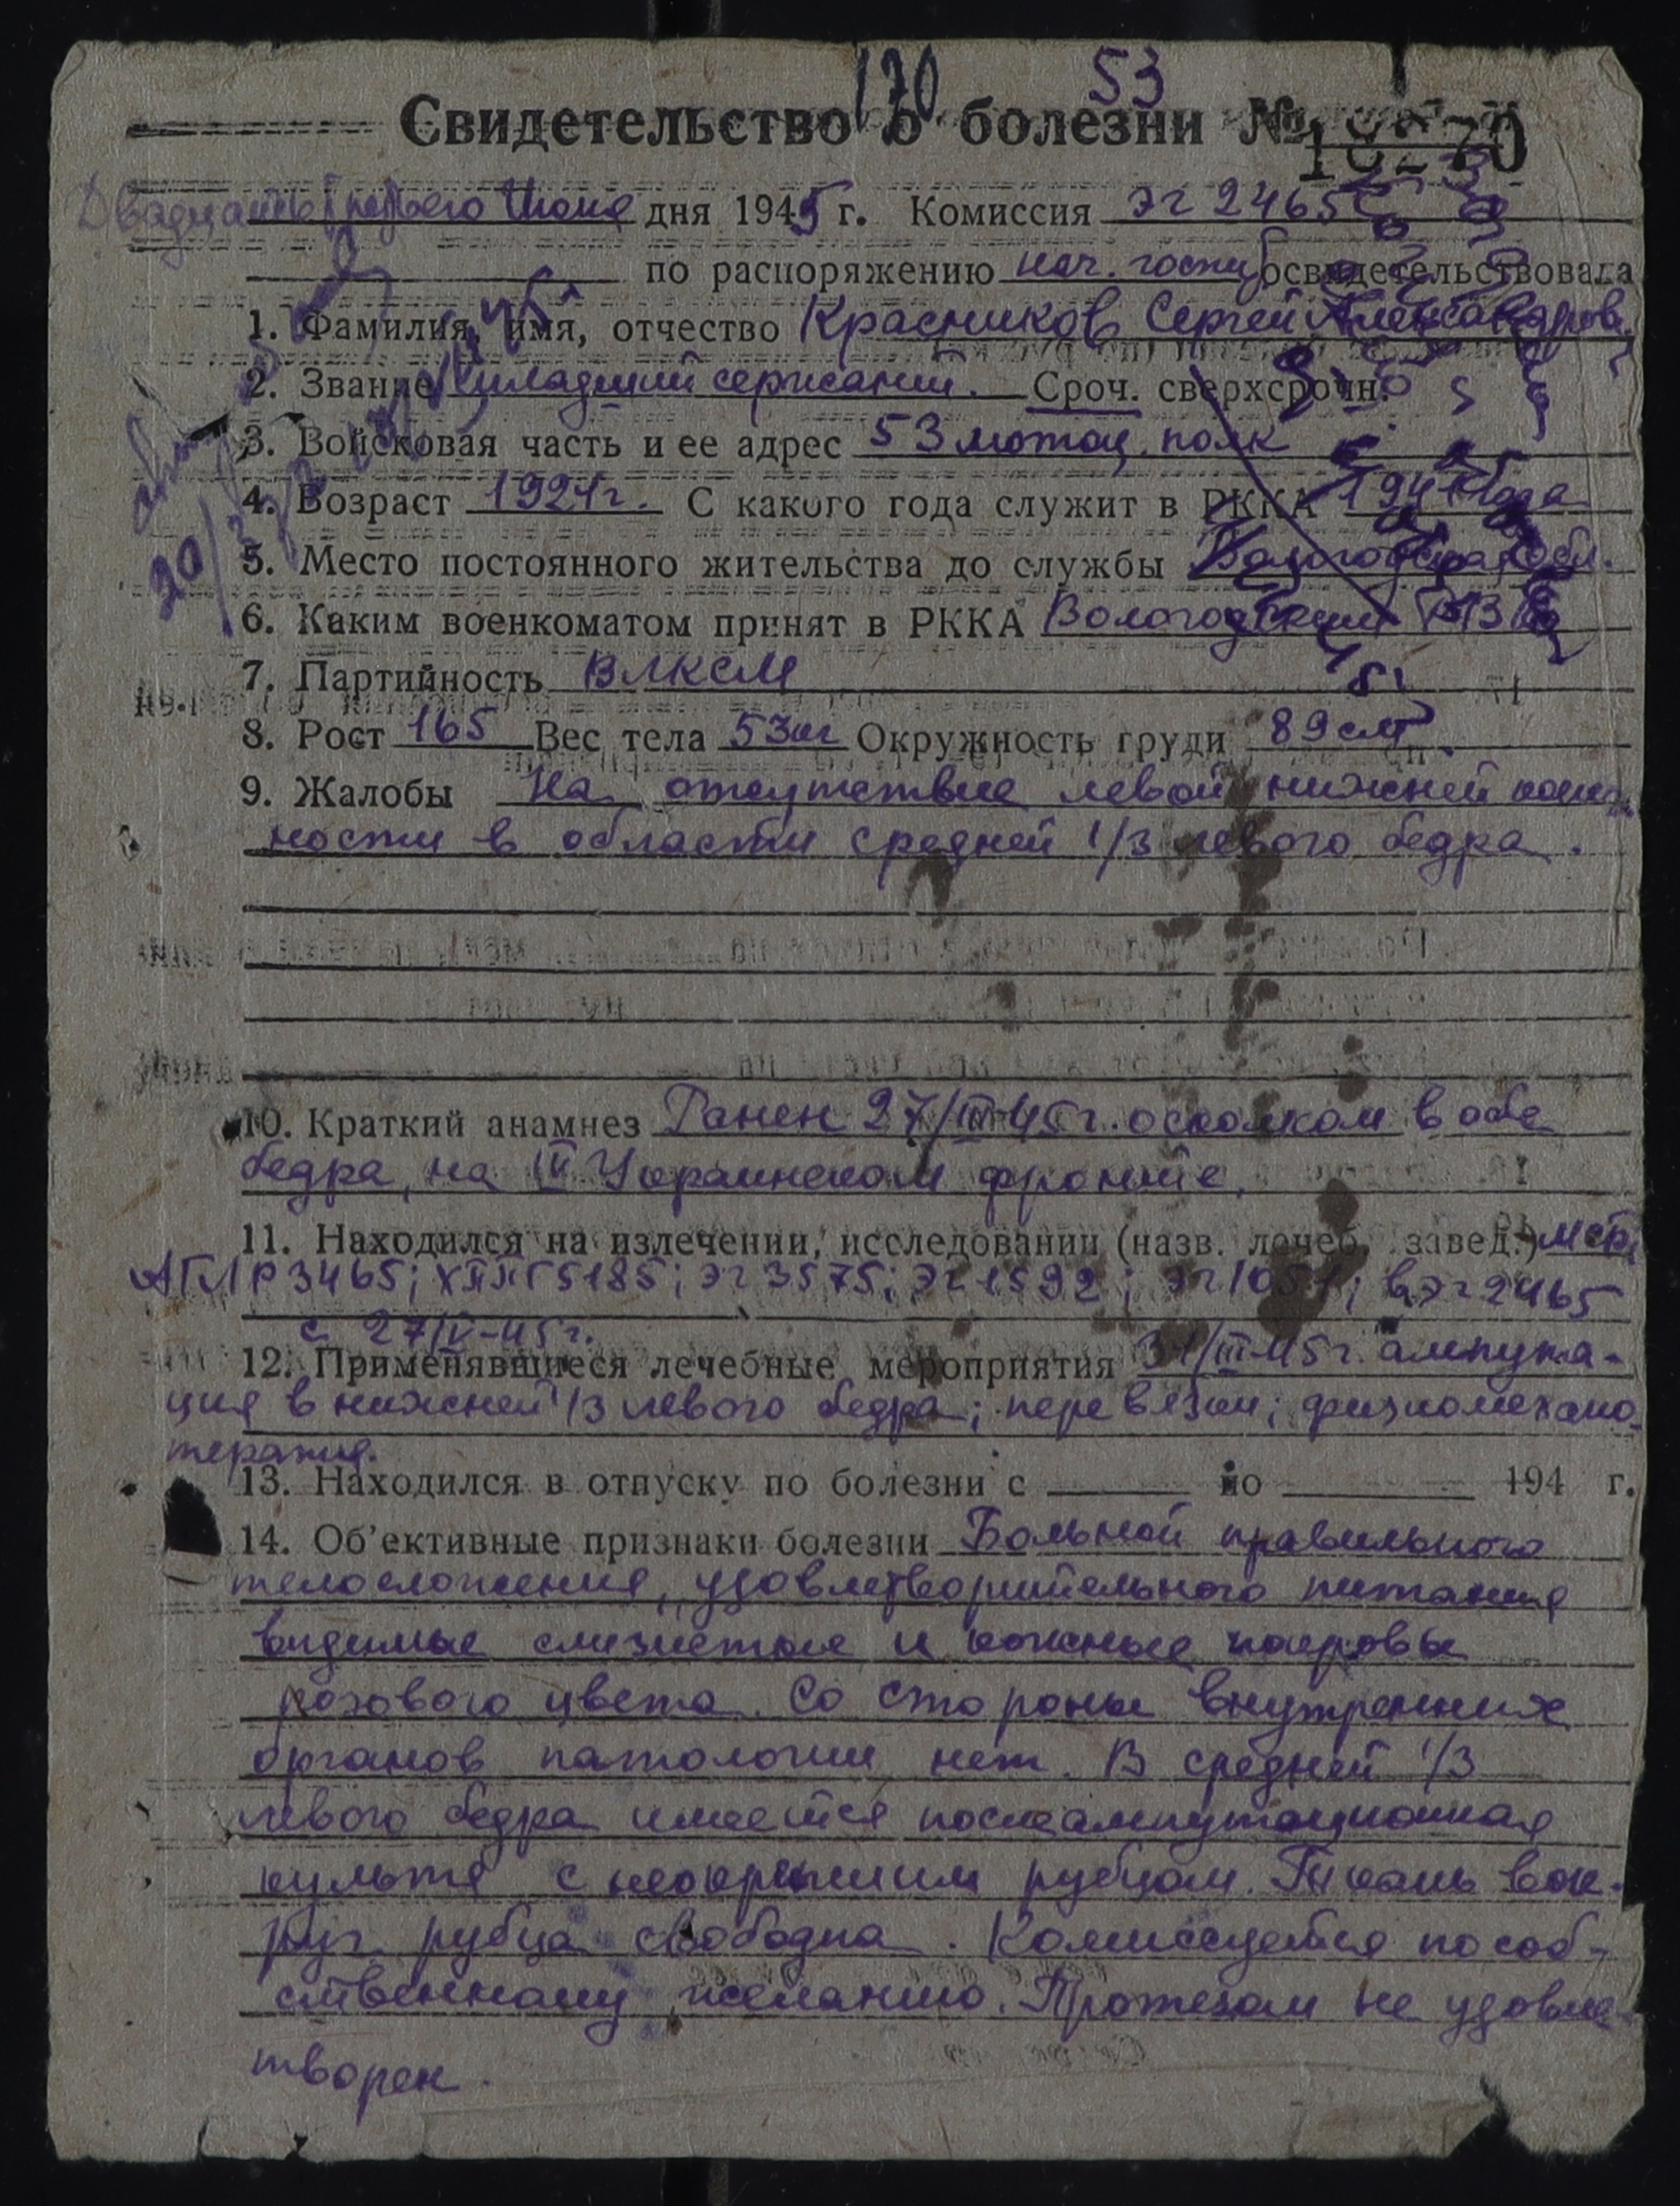 170 53
Свидетельство о болезни № 18270
Двадцать третьего Июня дня 1945 г. Комиссия эг 2465
по распоряжению нач. госпит освидетельствовала
1. Фамилия, имя, отчество Красников Сергей Александров.
2. Звание младший сержант. Сроч. сверхсрочн.
3. Войсковая часть и ее адрес 53 мотоц. полк
4. Возраст 1924г. С какого года служит в РККА 194 года
5. Место постоянного жительства до службы Вологодская обл.
6. Каким военкоматом принят в РККА Вологодским РВК
7. Партийность ВЛКСМ
8. Рост 165 Вес тела 53кг Окружность груди 89см
9. Жалобы На отсутствие левой нижней конеч-
ности в области средней 1/3 левого бедра.
10. Краткий анамнез Ранен 27/III-45г. осколком в оба
бедра, на III Украинском фронте.
11. Находился на излечении, исследовании (назв. лечеб. завед.) мсб,
АГЛР 3465; ХППГ 5185; эг 3575; эг 1592; эг 1051; в эг 2465
с 27/V-45г.
12. Применявшиеся лечебные мероприятия 31/III-45г. ампута-
ция в нижней 1/3 левого бедра; перевязки; физиомехано-
терапия.
13. Находился в отпуску по болезни с по 194 г.
14. Об'ективные признаки болезни Больной правильного
телосложения, удовлетворительного питания
видимые слизистые и кожные покровы
розового цвета. Со стороны внутренних
органов патологии нет. В средней 1/3
левого бедра имеется послеампутационная
культя с неокрепшим рубцом. Ткань вок-
руг рубца свободна. Комиссуется по соб-
ственному желанию. Протезом не удовле-
творен.